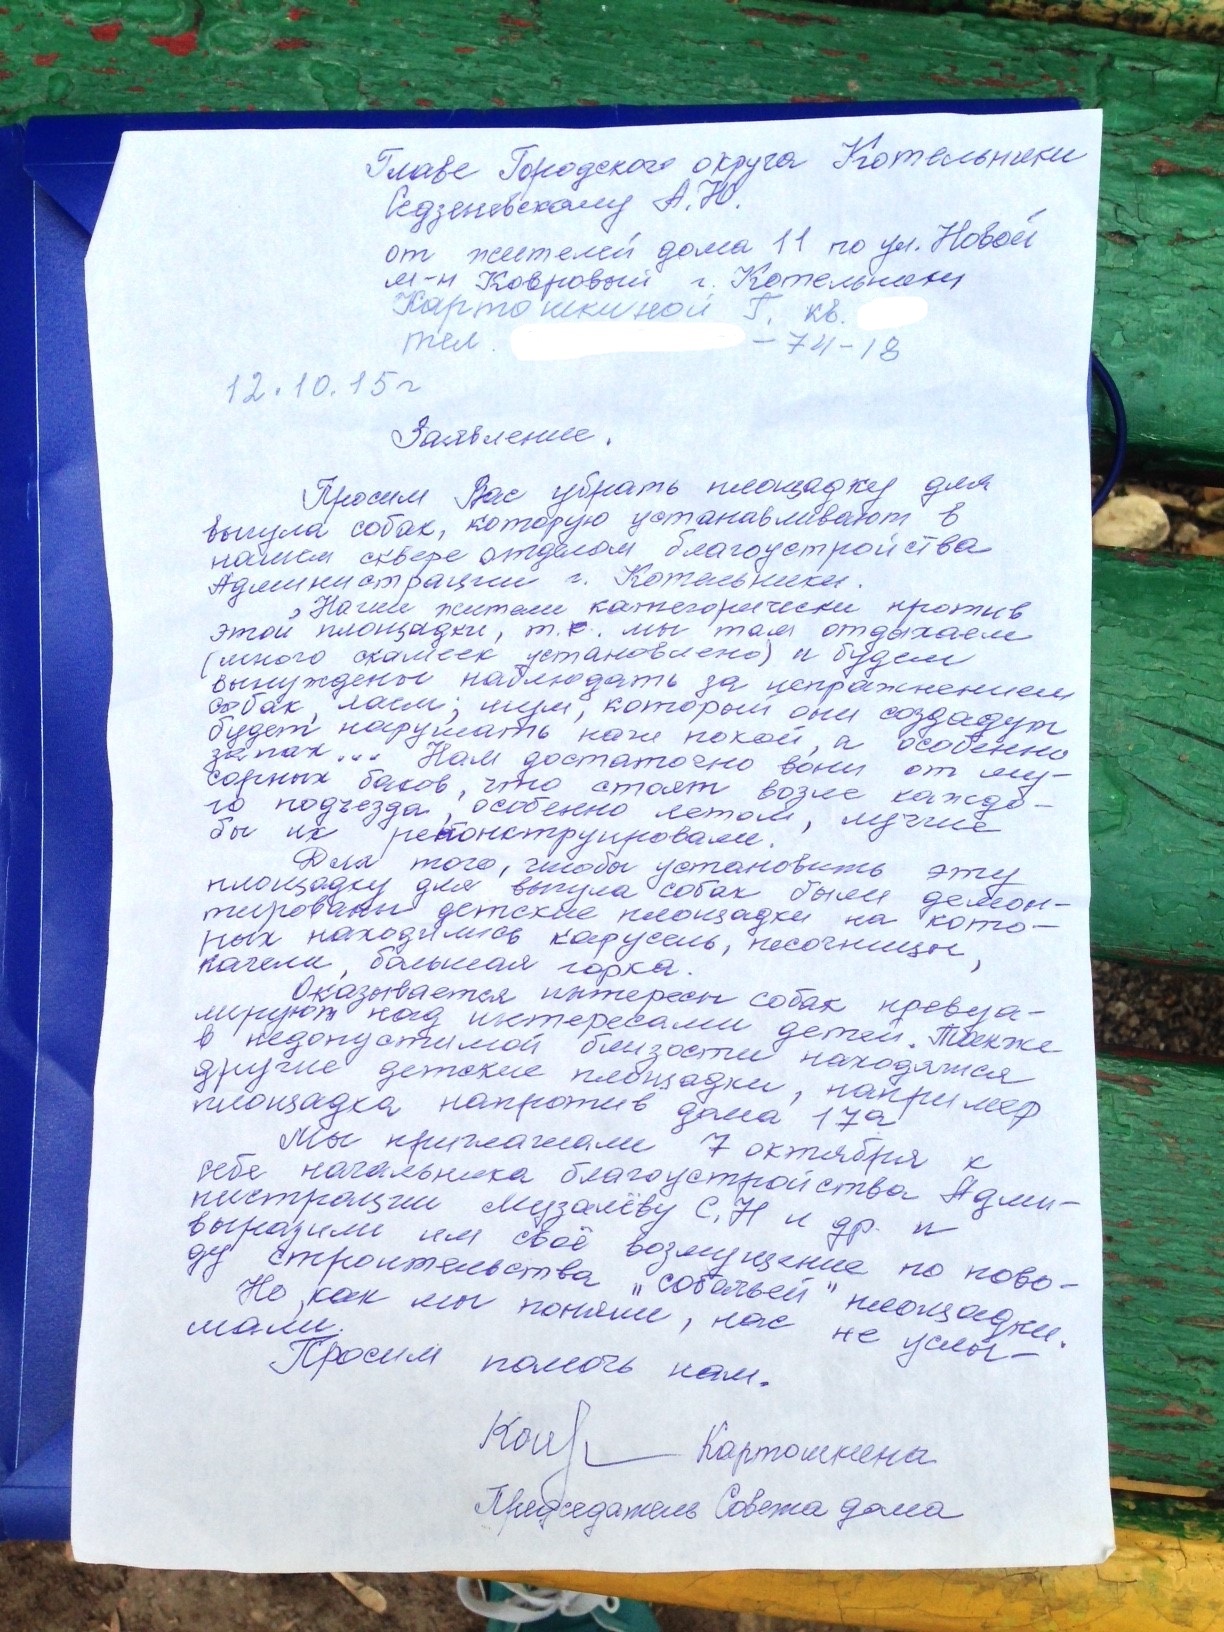 Главе Городского округа Котельники
Седзеневскому А.Ю.
от жителей дома 11 по ул. Новой
м-н Ковровый г. Котельники
Картошкиной Г. кв.
тел. -74-18
12.10.15г
Заявление.
Просим Вас убрать площадку для
выгула собак, которую устанавливают в
нашем сквере отделом благоустройства
Администрации г. Котельники.
Наши жители категорически против
этой площадки, т.к. мы там отдыхаем
(много скамеек установлено) и будем
вынуждены наблюдать за испражнением
собак, лаем, шум, который они создадут
будет нарушать наш покой, а особенно
запах... Нам достаточно вони от му-
сорных баков, что стоят возле каждо-
го подъезда, особенно летом, лучше
бы их реконструировали.
Для того, чтобы установить эту
площадку для выгула собак были демон-
тированы детские площадки на кото-
рых находились карусель, песочницы,
качели, большая горка.
Оказывается интересы собак превуа-
лируют над интересами детей. Также
в недопустимой близости находятся
другие детские площадки, например
площадка напротив дома 17а
Мы приглашали 7 октября к
себе начальника благоустройства Адми-
нистрации Музалёву С.Н и др. и
выразили им своё возмущение по пово-
ду строительства "собачьей" площадки.
Но, как мы поняли, нас не услы-
шали.
Просим помочь нам.
Картошкина
Председатель Совета дома